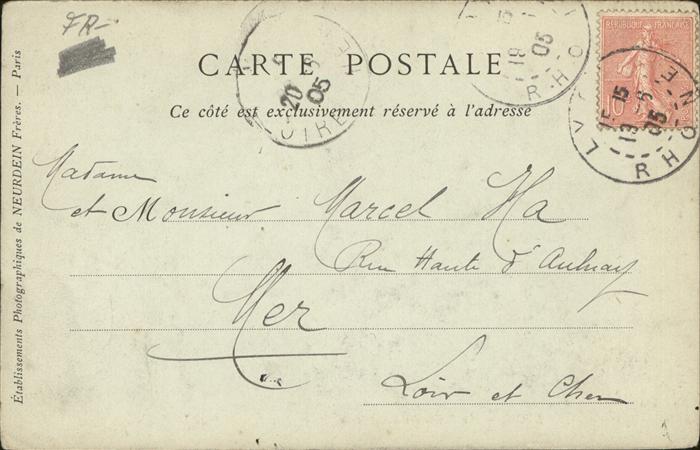 FR-
CARTE POSTALE
Ce côté est exclusivement réservé à l'adresse
RÉPUBLIQUE FRANÇAISE
10
15
19 -6
05
RHONE
20
05
Madame
et Monsieur Marcel Ha
Rue Haute d'Aulnay
Mer
Loir et Cher
Établissements Photographiques de NEURDEIN Frères. — Paris